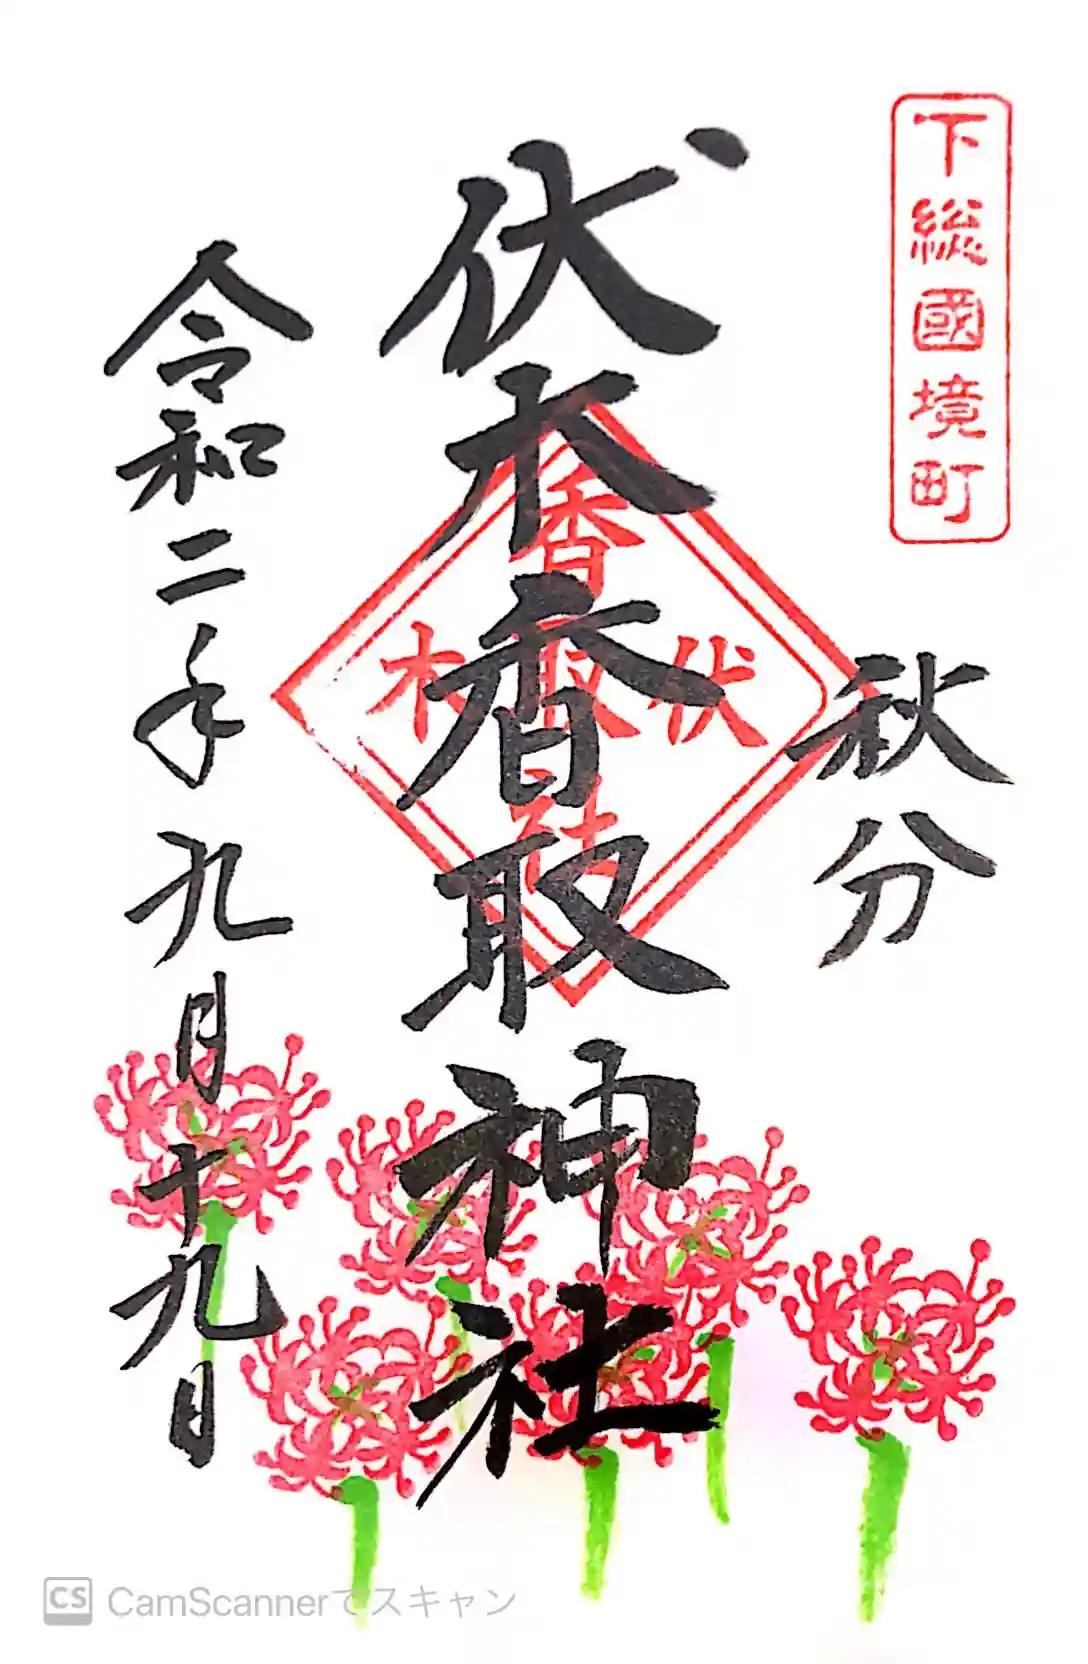 下総國境町
秋分
伏木香取神社
香取社
伏
木
令和二年九月十九日
CS CamScannerでスキャン